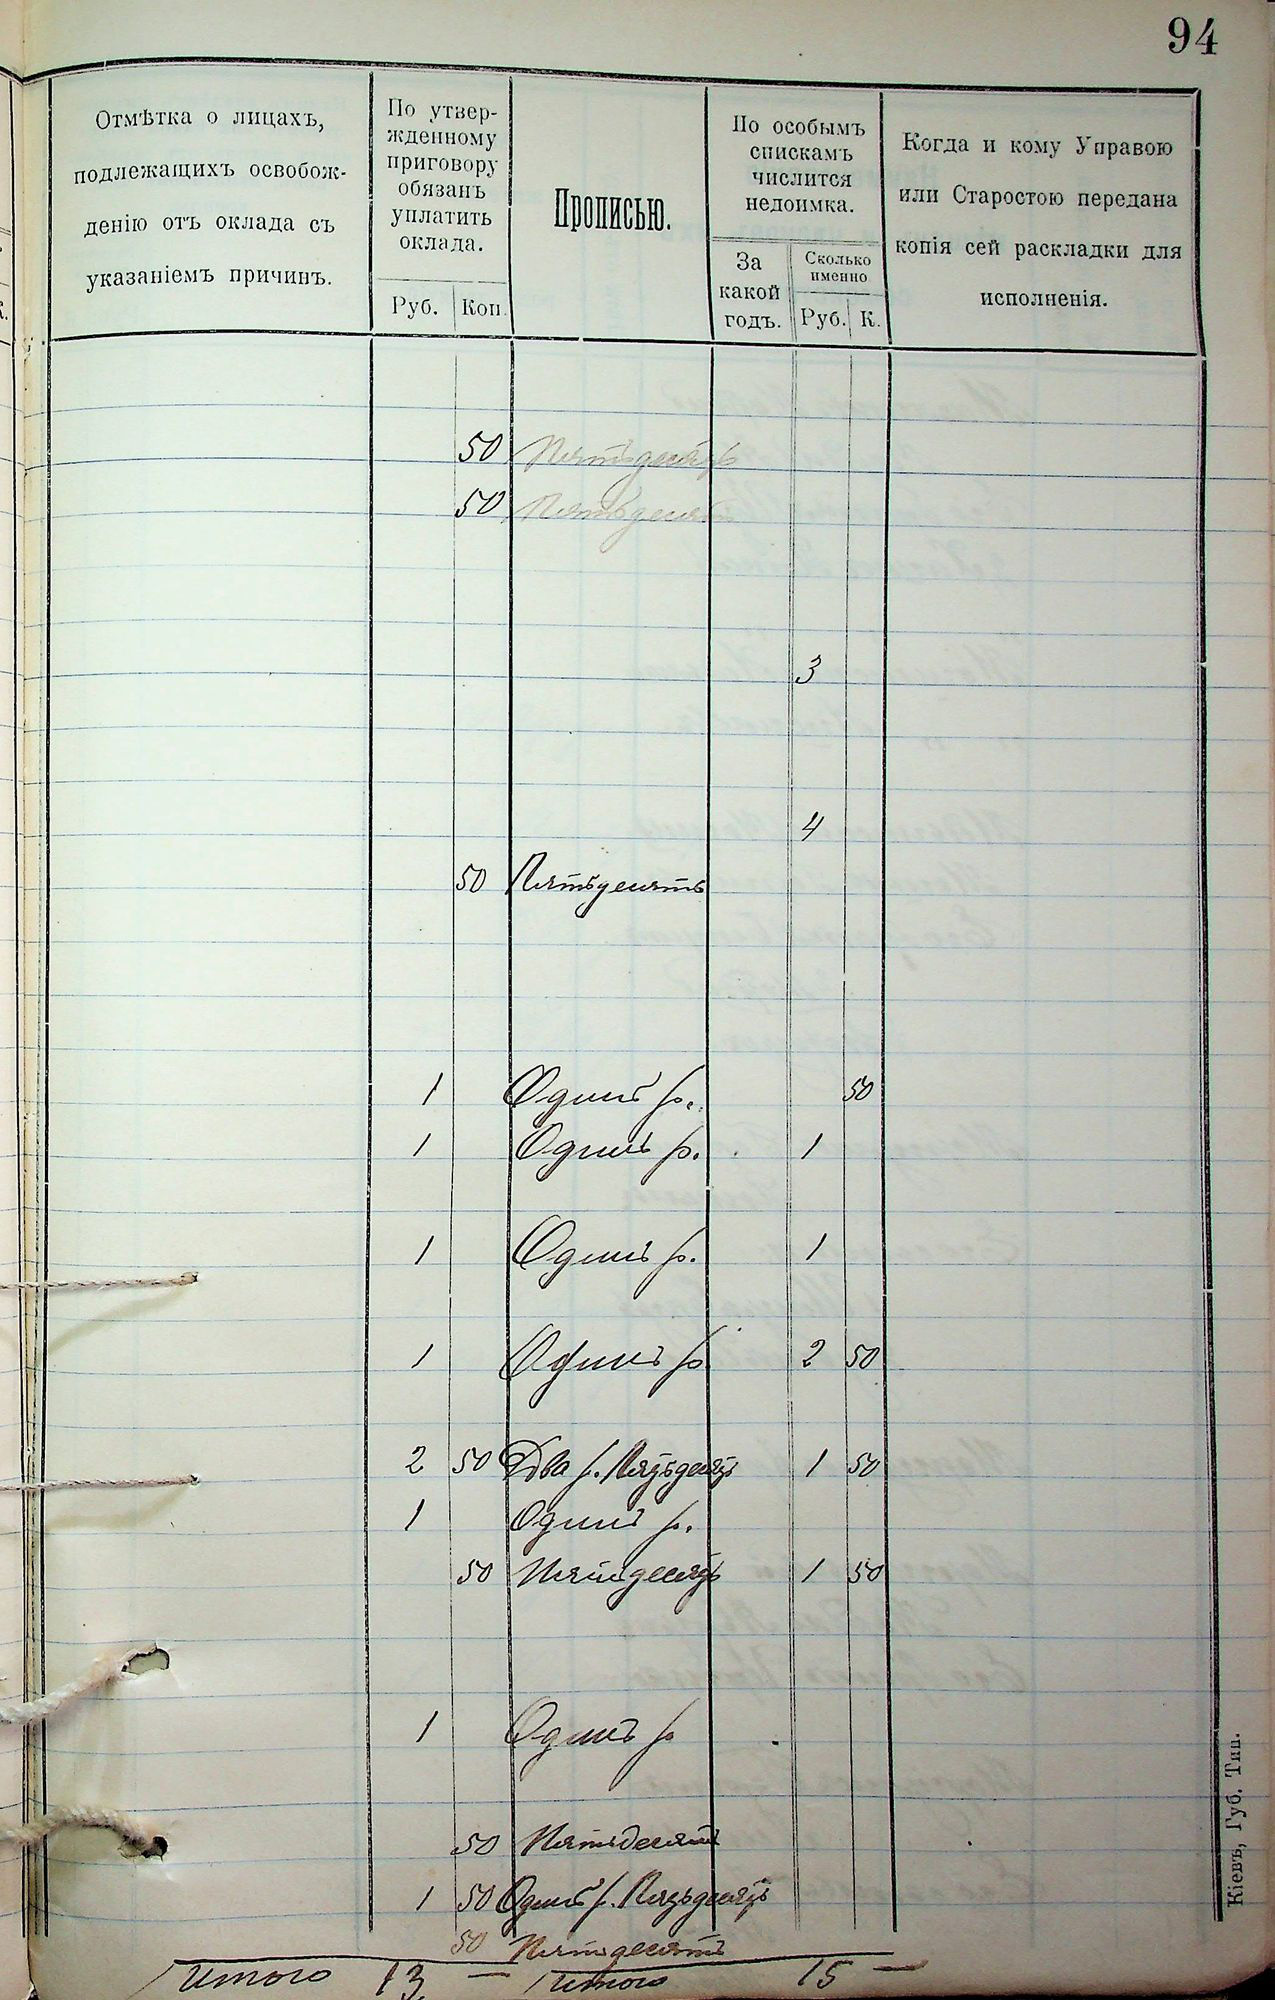 94
Отмѣтка о лицахъ,
подлежащихъ освобож-
денію отъ оклада съ
указаніемъ причинъ.
По утвер-
жденному
приговору
обязанъ
уплатить
оклада.
Руб. Коп.
Прописью.
По особымъ
спискамъ
числится
недоимка.
За
какой
годъ.
Сколько
именно
Руб. К.
Когда и кому Управою
или Старостою передана
копія сей раскладки для
исполненія.
50 Пятьдесятъ
50 Пятьдесятъ
3
4
50 Пятьдесятъ
1 Одинъ р. 50
1 Одинъ р. 1
1 Одинъ р. 1
1 Одинъ р. 2 50
2 50 Два р. Пятьдесятъ 1 50
1 Одинъ р.
50 Пятьдесятъ 1 50
1 Одинъ р
50 Пятьдесятъ
1 50 Одинъ р. Пятьдесятъ
50 Пятьдесятъ
Итого 13 — Итого 15 —
Кіевъ, Губ. Тип.